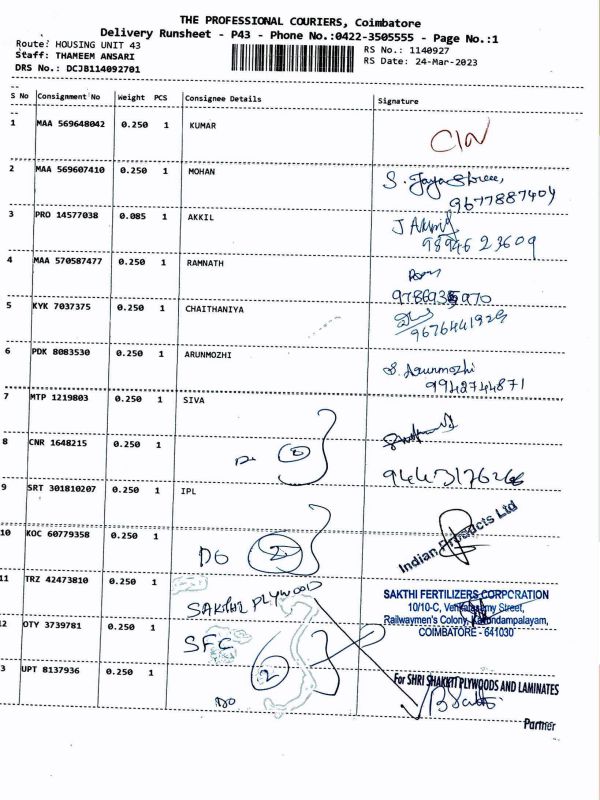 THE PROFESSIONAL COURIERS, Coimbatore
Delivery Runsheet - P43 - Phone No.:0422-3505555 - Page No.:1
Route: HOUSING UNIT 43 RS No.: 1140927
Staff: THAMEEM ANSARI RS Date: 24-Mar-2023
DRS No.: DCJB114092701
S No Consignment No Weight PCS Consignee Details Signature
1 MAA 569648042 0.250 1 KUMAR
2 MAA 569607410 0.250 1 MOHAN S. Jayashree,
9677887404
3 PRO 14577038 0.085 1 AKKIL
9894623609
4 MAA 570587477 0.250 1 RAMNATH
5 KYK 7037375 0.250 1 CHAITHANIYA
9676441929
6 PDK 8083530 0.250 1 ARUNMOZHI S. Arunmozhi
9942744871
7 MTP 1219803 0.250 1 SIVA
8 CNR 1648215 0.250 1
9 SRT 301810207 0.250 1 IPL
Indian Products Ltd
10 KOC 60779358 0.250 1 DO 2
11 TRZ 42473810 0.250 1 SAKTHI PLYWOOD
SAKTHI FERTILIZERS CORPORATION
10/10-C, Venkatasamy Street,
Railwaymen's Colony, Kavundampalayam,
COIMBATORE - 641030
12 OTY 3739781 0.250 1 SFC
3 UPT 8137936 0.250 1 2
For SHRI SHAKKTI PLYWOODS AND LAMINATES
DO
Partner